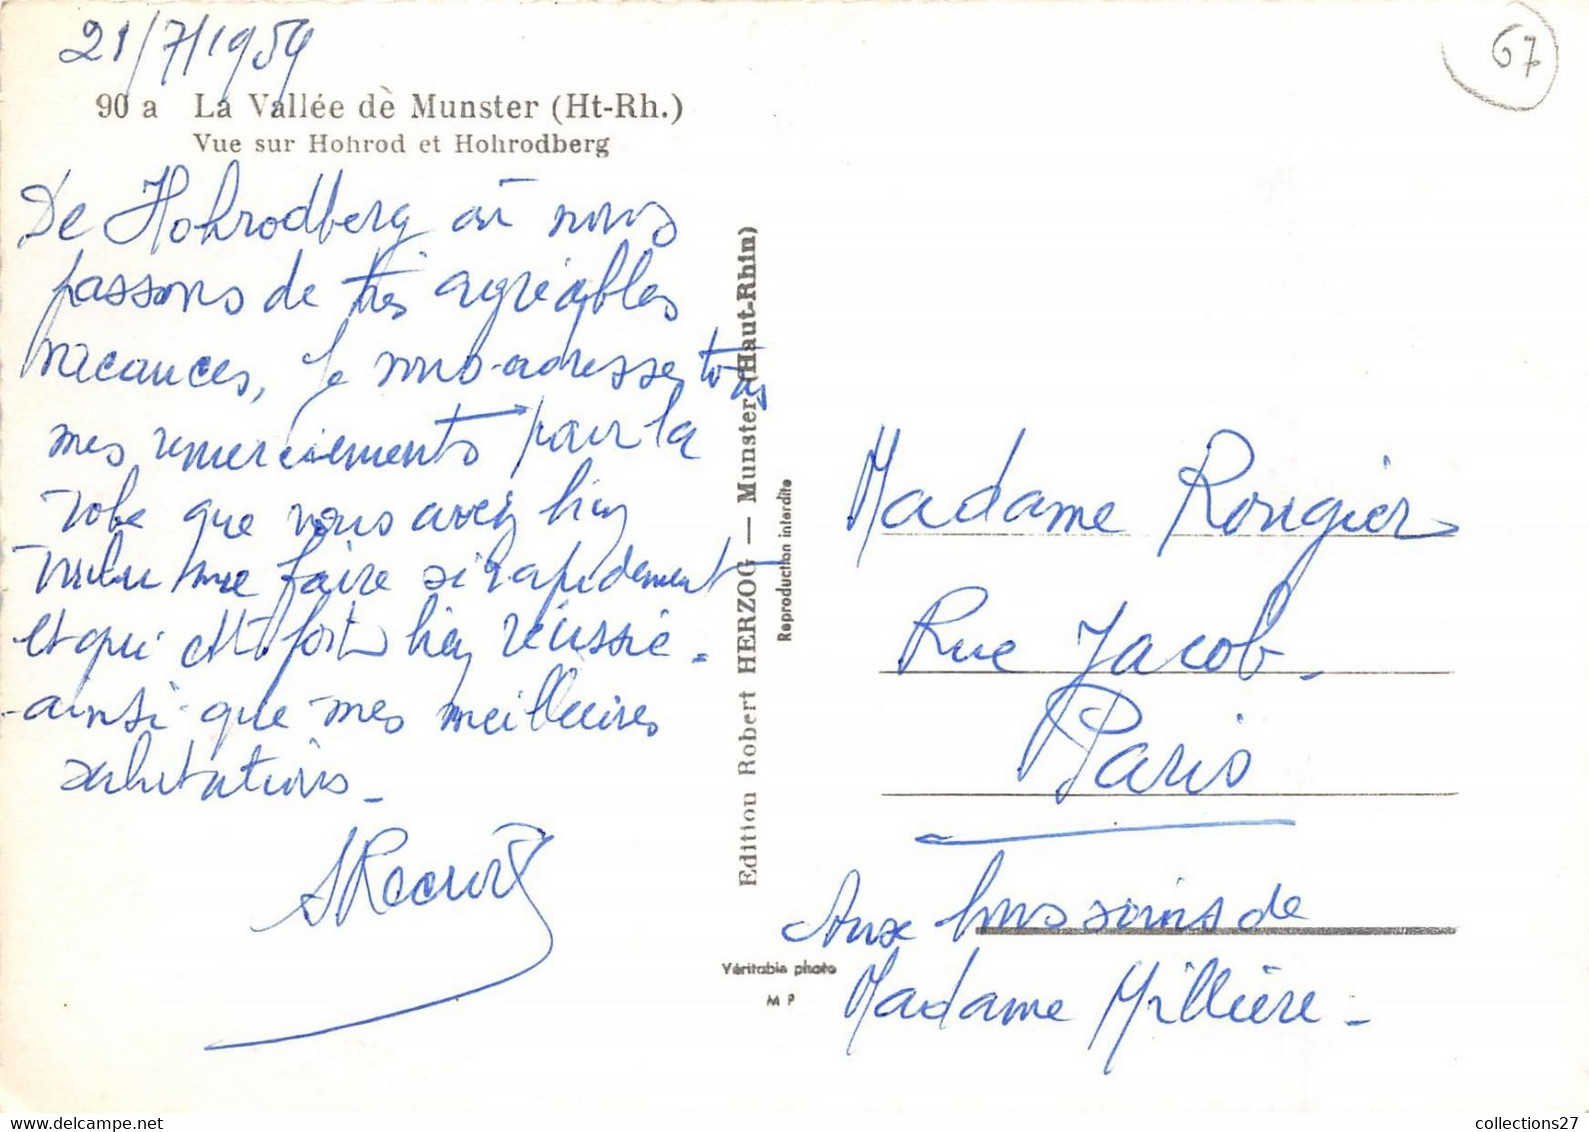 21/7/1959
67
90 a La Vallée de Munster (Ht-Rh.)
Vue sur Hohrod et Hohrodberg
De Hohrodberg où nous
passons de très agréables
vacances, je vous adresse tous
mes remerciements pour la
robe que vous avez bien
voulu me faire si rapidement
et qui est fort bien réussie.
ainsi que mes meilleures
salutations.
Edition Robert HERZOG — Munster (Haut-Rhin)
Reproduction interdite
Véritable photo
M P
Madame Rougier
Rue Jacob.
Paris
Aux bons soins de
Madame Millière.
collections27